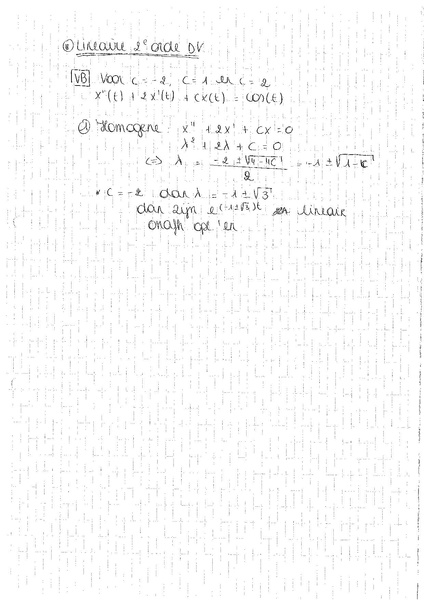 * Lineaire 2e orde DV
VB Voor c = -2, c = 1 en c = 2
x''(t) + 2x'(t) + cx(t) = cos(t)
① Homogene: x'' + 2x' + cx = 0
λ² + 2λ + c = 0
⇔ λ = (-2 ± √(4-4c))/2 = -1 ± √(1-c)
* c = -2 dan λ = -1 ± √3
dan zijn e^((-1±√3)t) lineair
onafh opl'en